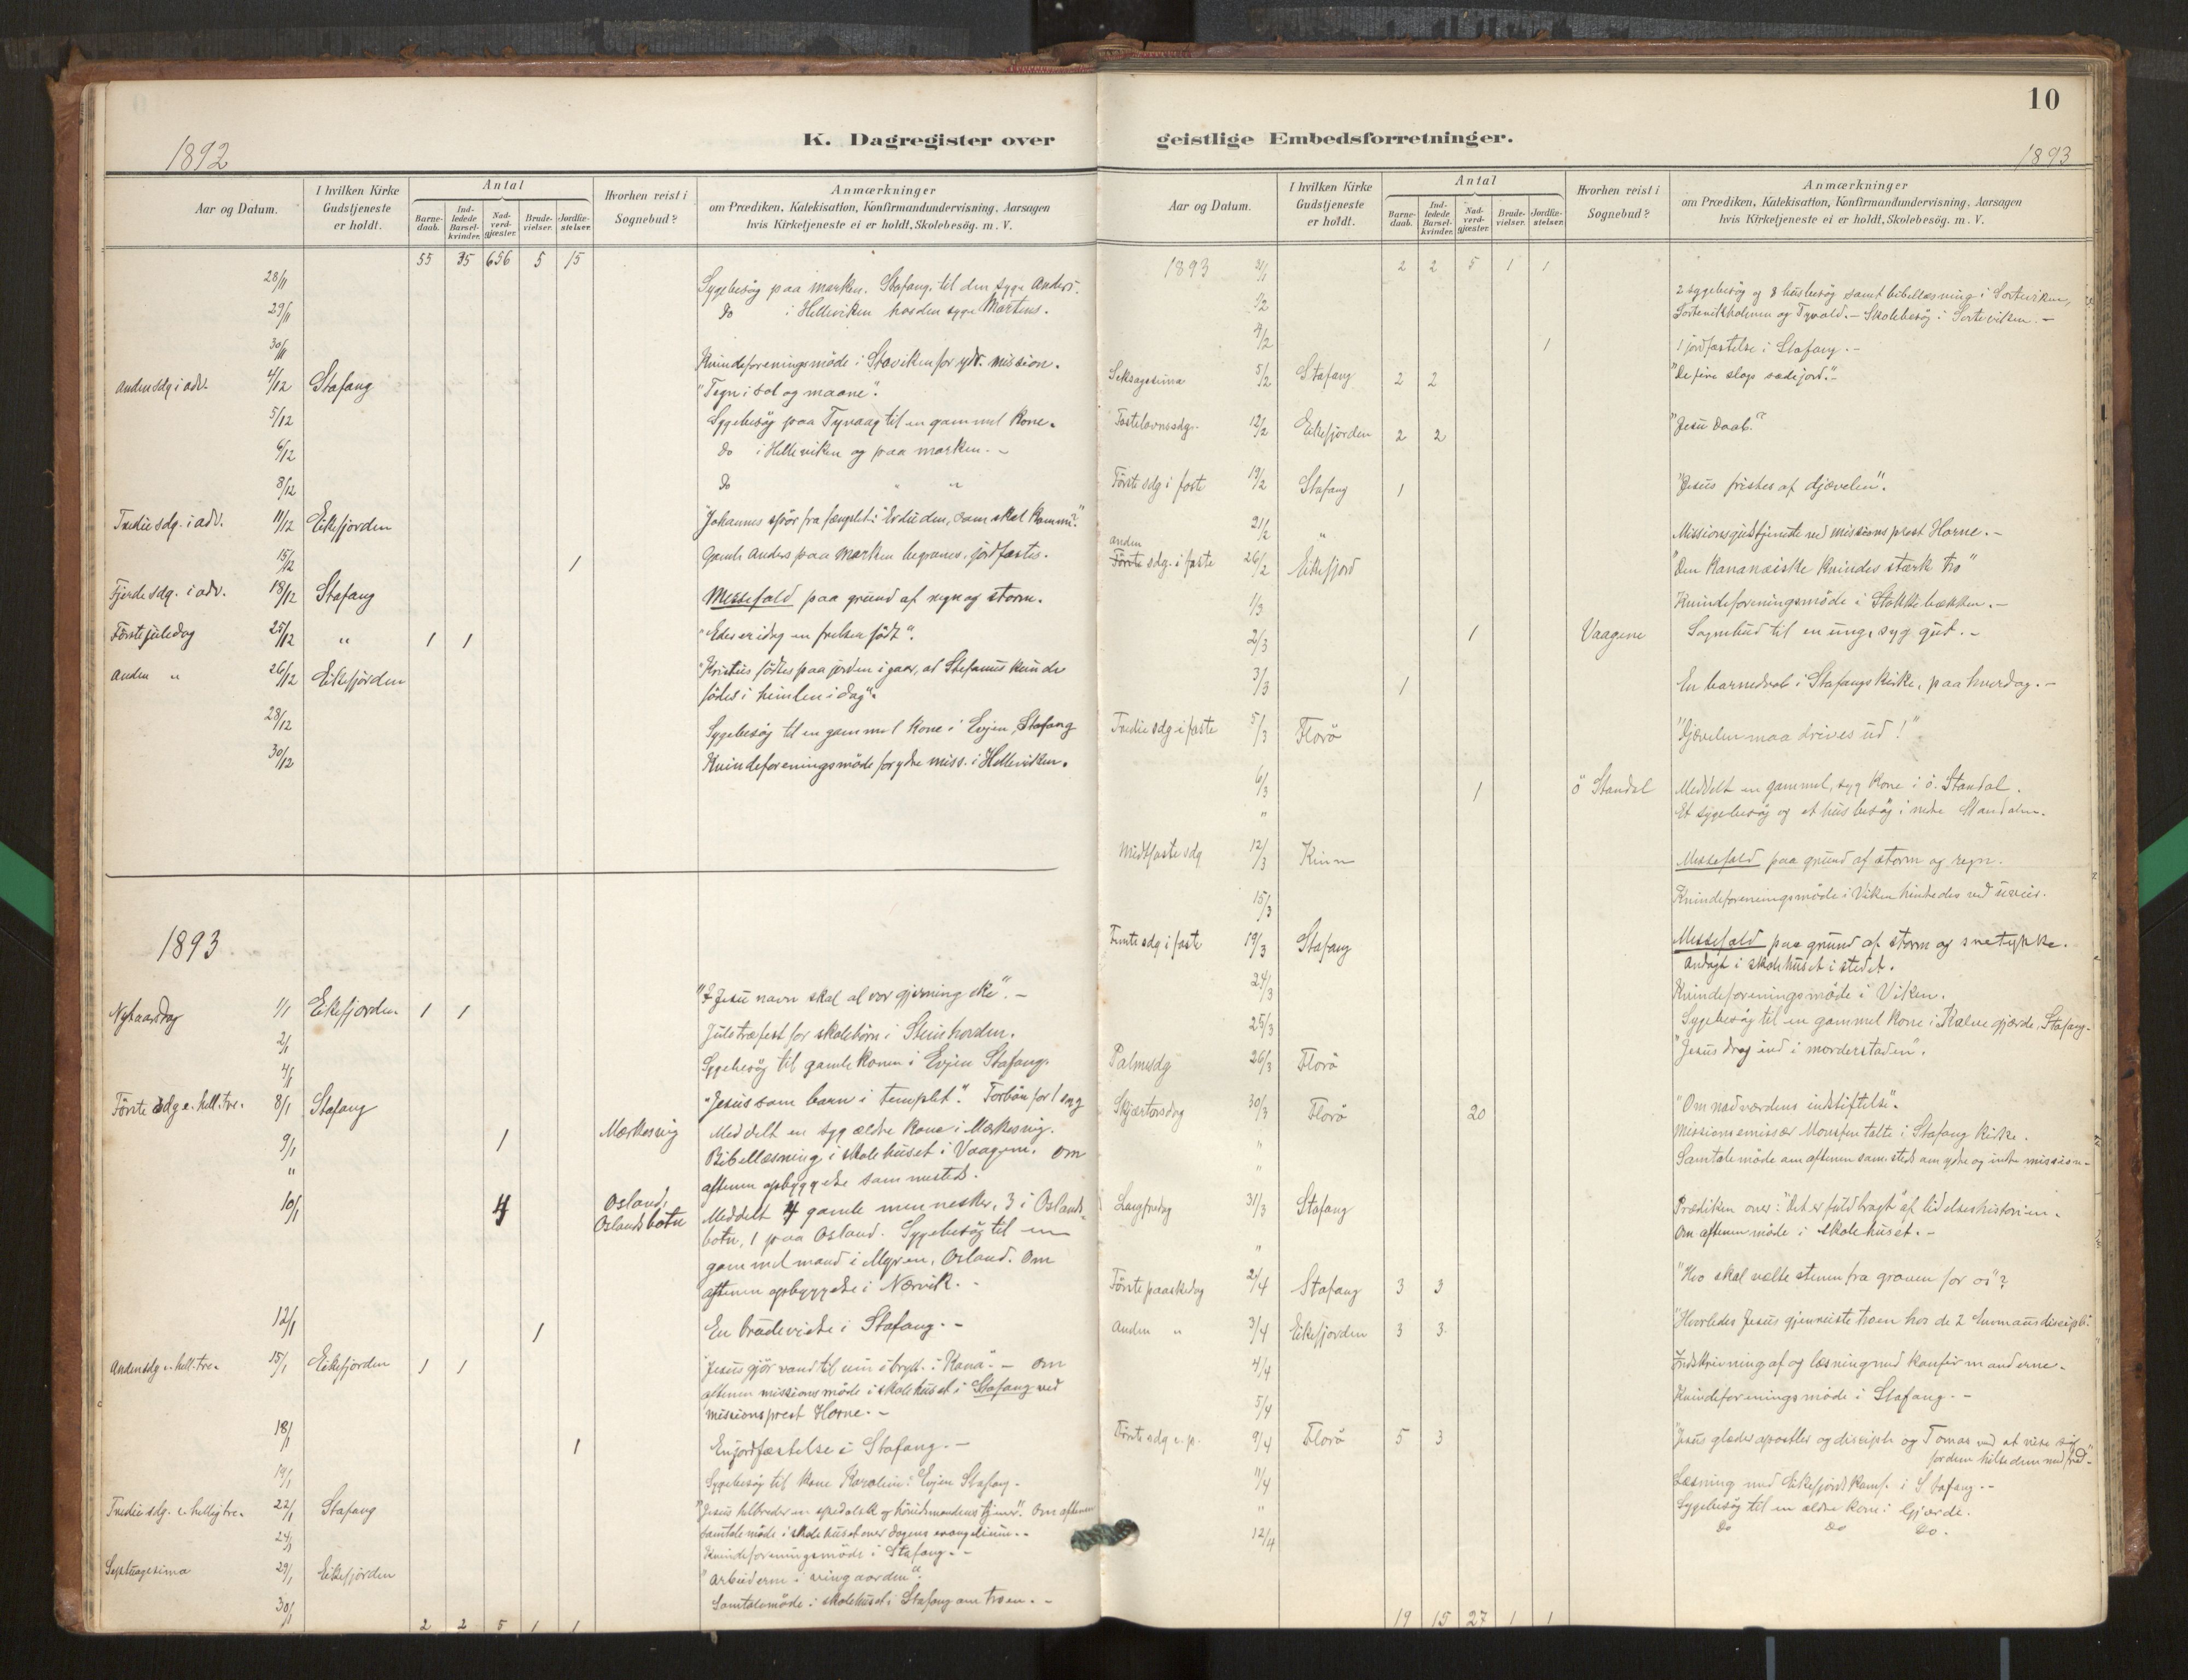 10
1892
K. Dagregister over
geistlige Embedsforretninger.
1893
Aar og Datum.
I hvilken Kirke
Gudstjeneste
er holdt.
Antal
Barne-
daab.
Ind-
ledede
Barsel-
kvinder.
Nad-
verd-
gjæster.
Brude-
vielser.
Jordfæ-
stelser.
Hvorhen reist i
Sognebud?
Anmærkninger
om Prædiken, Katekisation, Konfirmandundervisning, Aarsagen
hvis Kirketjeneste ei er holdt, Skolebesög. m. V.
55 35 656 5 15
28/11 Sygebesög paa marken, Stafang, til den syge Anders.
29/11 Do i Helleviken hos den syge Martens.
30/11 Kvindeforeningsmöde i Staviken for ydr. mission.
Anden sdg i adv. 4/12 Stafang "Tegn i sol og maane".
5/12 Sygebesög paa Tyvaag til en gammel kone.
6/12 Do i Helleviken og paa marken. -
8/12 Do " "
Tredie sdg. i adv. 11/12 Eikefjorden "Johannes spör fra fængslet: "Er du den, som skal komme".
15/12 1 Gamle Anders paa Marken begraves, jordfæstes.
Fjerde sdg. i adv. 18/12 Stafang Messefald paa grund af regn og storm.
Förste juledag 25/12 " 1 1 "Eder er idag en frelser födt".
Anden " 26/12 Eikefjorden "Kristus födtes paa jorden igaar, at Stefanus kunde
födes i himlen i dag".
28/12 Sygebesög til en gammel kone i Evjen, Stafang
30/12 Kvindeforeningsmöde for ydre miss. i Helleviken.
1893
Nytaarsdag 1/1 Eikefjorden 1 1 "I Jesu navn skal al vor gjerning ske". -
2/1 Juletræfest for skolebörn i Steinhovden.
4/1 Sygebesög til gamle konen i Evjen Stafang.
Förste sdg e. hell. tre. 8/1 Stafang "Jesus som barn i templet". Forbön for 1 syg
9/1 1 Mærkesvig Meddelt en syg ældre kone i Mærkesvig.
" Bibellæsning i skolehuset i Vaagene. Om
aftenen opbyggelse sammesteds.
10/1 4 Osland, Oslandsbotn Meddelt 4 gamle mennesker, 3 i Oslands-
botn, 1 paa Osland. Sygebesög til en
gammel mand i Myren, Osland. Om
aftenen opbyggelse i Nærvik. -
12/1 1 En brudevielse i Stafang. -
Anden sdg e. hell. tre. 15/1 Eikefjorden 1 1 "Jesus gjör vand til vin i bryll. i Kana". - Om
aftenen missionsmöde i skolehuset i Stafang ved
missionsprest Horne. -
18/1 1 En jordfæstelse i Stafang. -
19/1 Sygebesög til kone Karoline i Evjen Stafang.
Tredie sdg. e. hellig tre. 22/1 Stafang "Jesus helbreder en spedalsk og höuedsmandens tjener". Om aftenen
samtalemöde i skolehuset over dagens evangelium. -
24/1 Kvindeforeningsmöde i Stafang. -
Septuagesima 29/1 Eikefjorden "Arbeiderne i vingaarden".
30/1 Samtalemöde i skolehuset i Stafang om troen. -
2 2 5 1 1
Aar og Datum.
I hvilken Kirke
Gudstjeneste
er holdt.
Antal
Barne-
daab.
Ind-
ledede
Barsel-
kvinder.
Nad-
verd-
gjæster.
Brude-
vielser.
Jordfæ-
stelser.
Hvorhen reist i
Sognebud?
Anmærkninger
om Prædiken, Katekisation, Konfirmandundervisning, Aarsagen
hvis Kirketjeneste ei er holdt, Skolebesög. m. V.
1893 31/1 2 2 5 1 1
1/2 2 sygebesög og 8 husbesög samt bibellæsning i Sorteviken,
Sortevikholmen og Tyvold. - Skolebesög i Sorteviken. -
4/2 1 1 jordfæstelse i Stafang. -
Seksagesima 5/2 Stafang 2 2 "De fire slags sædejord". -
Fastelavnssdg. 12/2 Eikefjorden 2 2 "Jesu daab".
Förste sdg i faste 19/2 Stafang 1 "Jesus fristes af djævelen".
21/2 " Missionsgudstjeneste ved missionsprest Horne. -
anden
Förste sdg. i faste 26/2 Eikefjord "Den kananæiske kvindes stærke tro"
1/3 Kvindeforeningsmöde i Stokkebækken. -
2/3 1 Vaagene Sognebud til en ung, syg gut. -
3/3 1 En barnedaab i Stafangs kirke, paa hverdag. -
Tredie sdg i faste 5/3 Florö "Djævelen maa drives ud!".
6/3 1 ö Standal Meddelt en gammel, syg kone i ö. Standal.
" Et sygebesög og et husbesög i nedre Standalen.
Midtfaste sdg 12/3 Kinn Messefald paa grund af storm og regn.
15/3 Kvindeforeningsmöde i Viken hindredes ved uveir.
Femte sdg i faste 19/3 Stafang Messefald paa grund af storm og snetykke.
Andagt i skolehuset i stedet.
24/3 Kvindeforeningsmöde i Viken.
25/3 Sygebesög til en gammel kone i Kalvegjærde, Stafang.
Palmesdg 26/3 Florö "Jesus drog ind i morderstaden".
Skjærtorsdag 30/3 Florö 20 "Om nadverdens indstiftelse".
" Missionsemissær Monsen talte i Stafang kirke.
" Samtalemöde om aftenen sam. sted om ydre og indre mission. -
Langfredag 31/3 Stafang Prædiken over: "Det er fuldbragt" af lidelseshistorien.
" Om aftenen möde i skolehuset. -
Förste paaskedag 2/4 Stafang 3 3 "Hvo skal vælte stenen fra graven for os"?
Anden " 3/4 Eikefjorden 3 3 "Hvorledes Jesus gjenreiste troen hos de 2 Emmausdiscipl".
4/4 Indskrivning af og læsning med konfirmanderne.
5/4 Kvindeforeningsmöde i Stafang. -
Förste sdg e. p. 9/4 Florö 5 3 "Jesus glæder apostler og disciple og Tomas ved at vise sig
for dem hilse dem med fred".
11/4 Læsning med Eikefjordkonf. i Stafang. -
" Sygebesög til en ældre kone i Gjærde.
12/4 Do Do Do.
19 15 27 1 1